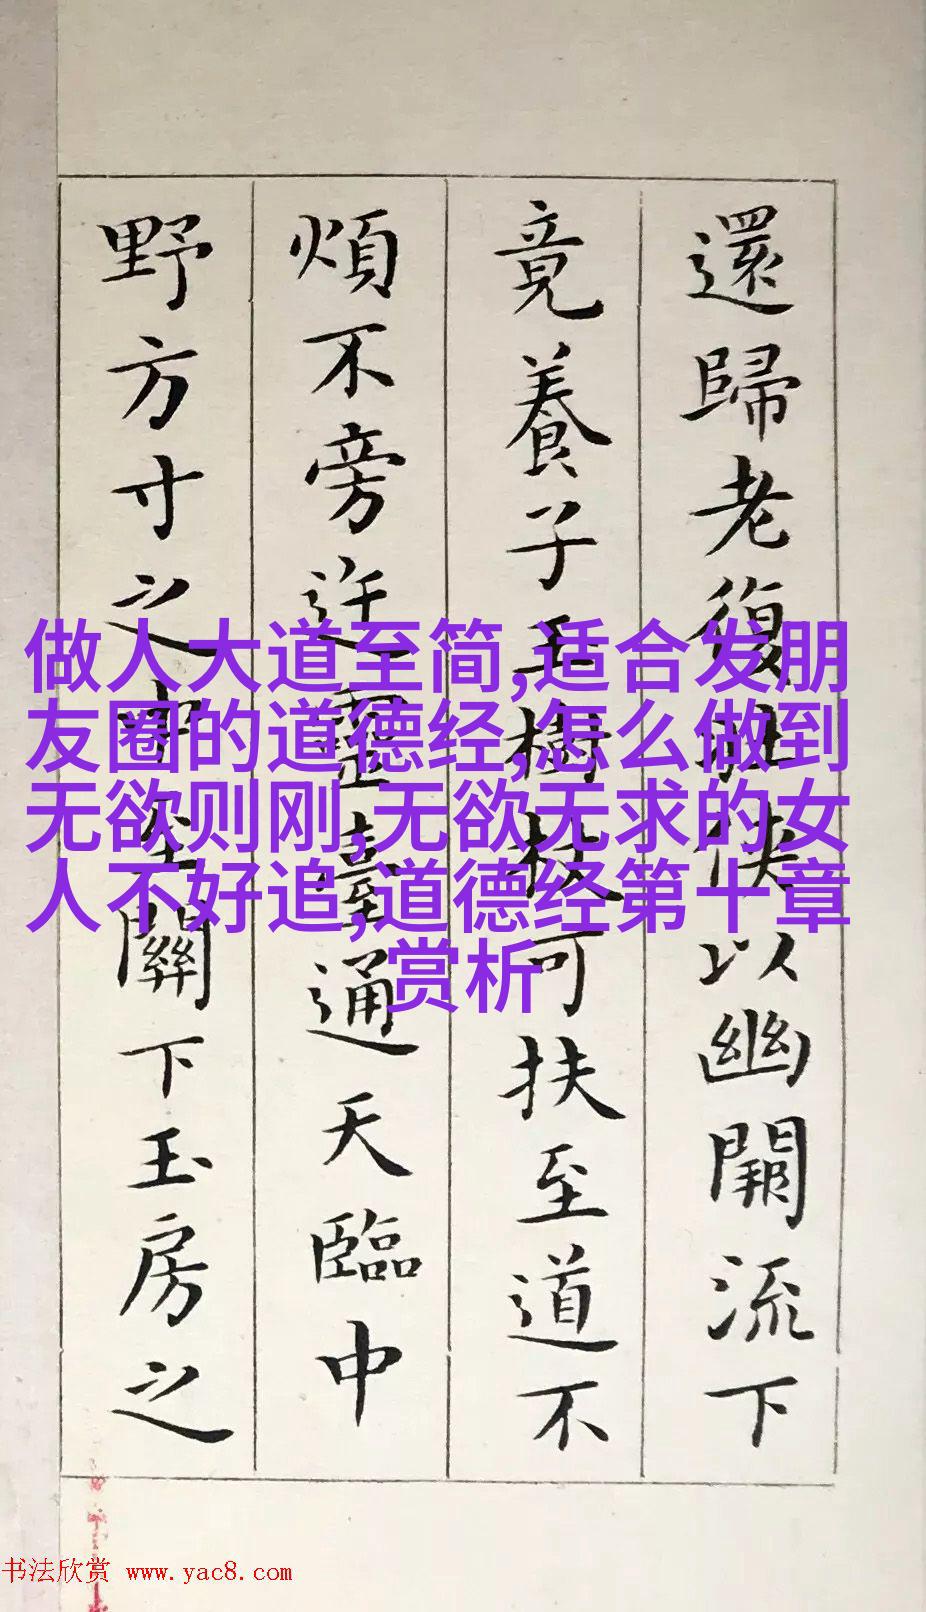 還歸老復壯俠以幽闕流下
竟養子玉樹杖可扶至道不
煩不旁迕靈臺通天臨中
野方寸之中至關下玉房之
做人大道至简,适合发朋
友圈的道德经,怎么做到
无欲则刚,无欲无求的女
人不好追,道德经第十章
赏析
书法欣赏 www.yac8.com